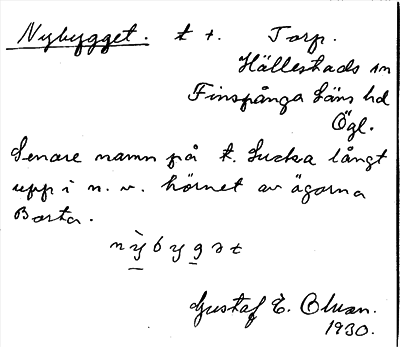 Nybygget. t t. Torp.
Hällestads sn
Finspånga läns hd
Ögl.
Senare namn på t. Sucka långt
upp i n. v. hörnet av ägorna
Borta.
nỳbygət
Gustaf E.
1930.